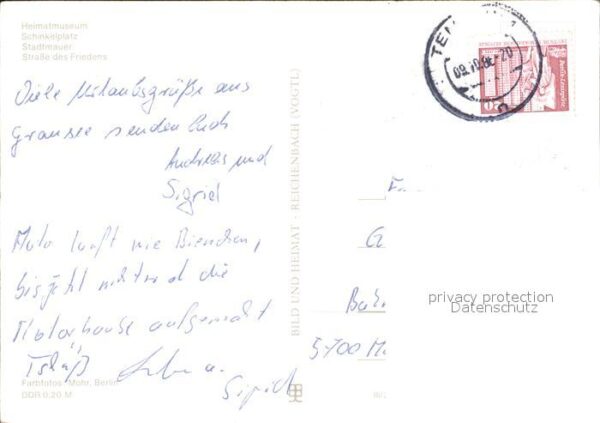 Heimatmuseum
Schinkelplatz
Stadtmauer
Straße des Friedens
Viele Urlaubsgrüße aus
Gransee senden Euch
Andreas und
Sigrid
Moto läuft wie Bienchen,
bis jetzt nicht die
Motorhaube aufgemacht
Sigrid
Farbfotos: Mohr, Berlin
DDR 0,20 M
BILD UND HEIMAT · REICHENBACH (VOGTL)
09.10.86-20
Berlin-Leninplatz
privacy protection
Datenschutz